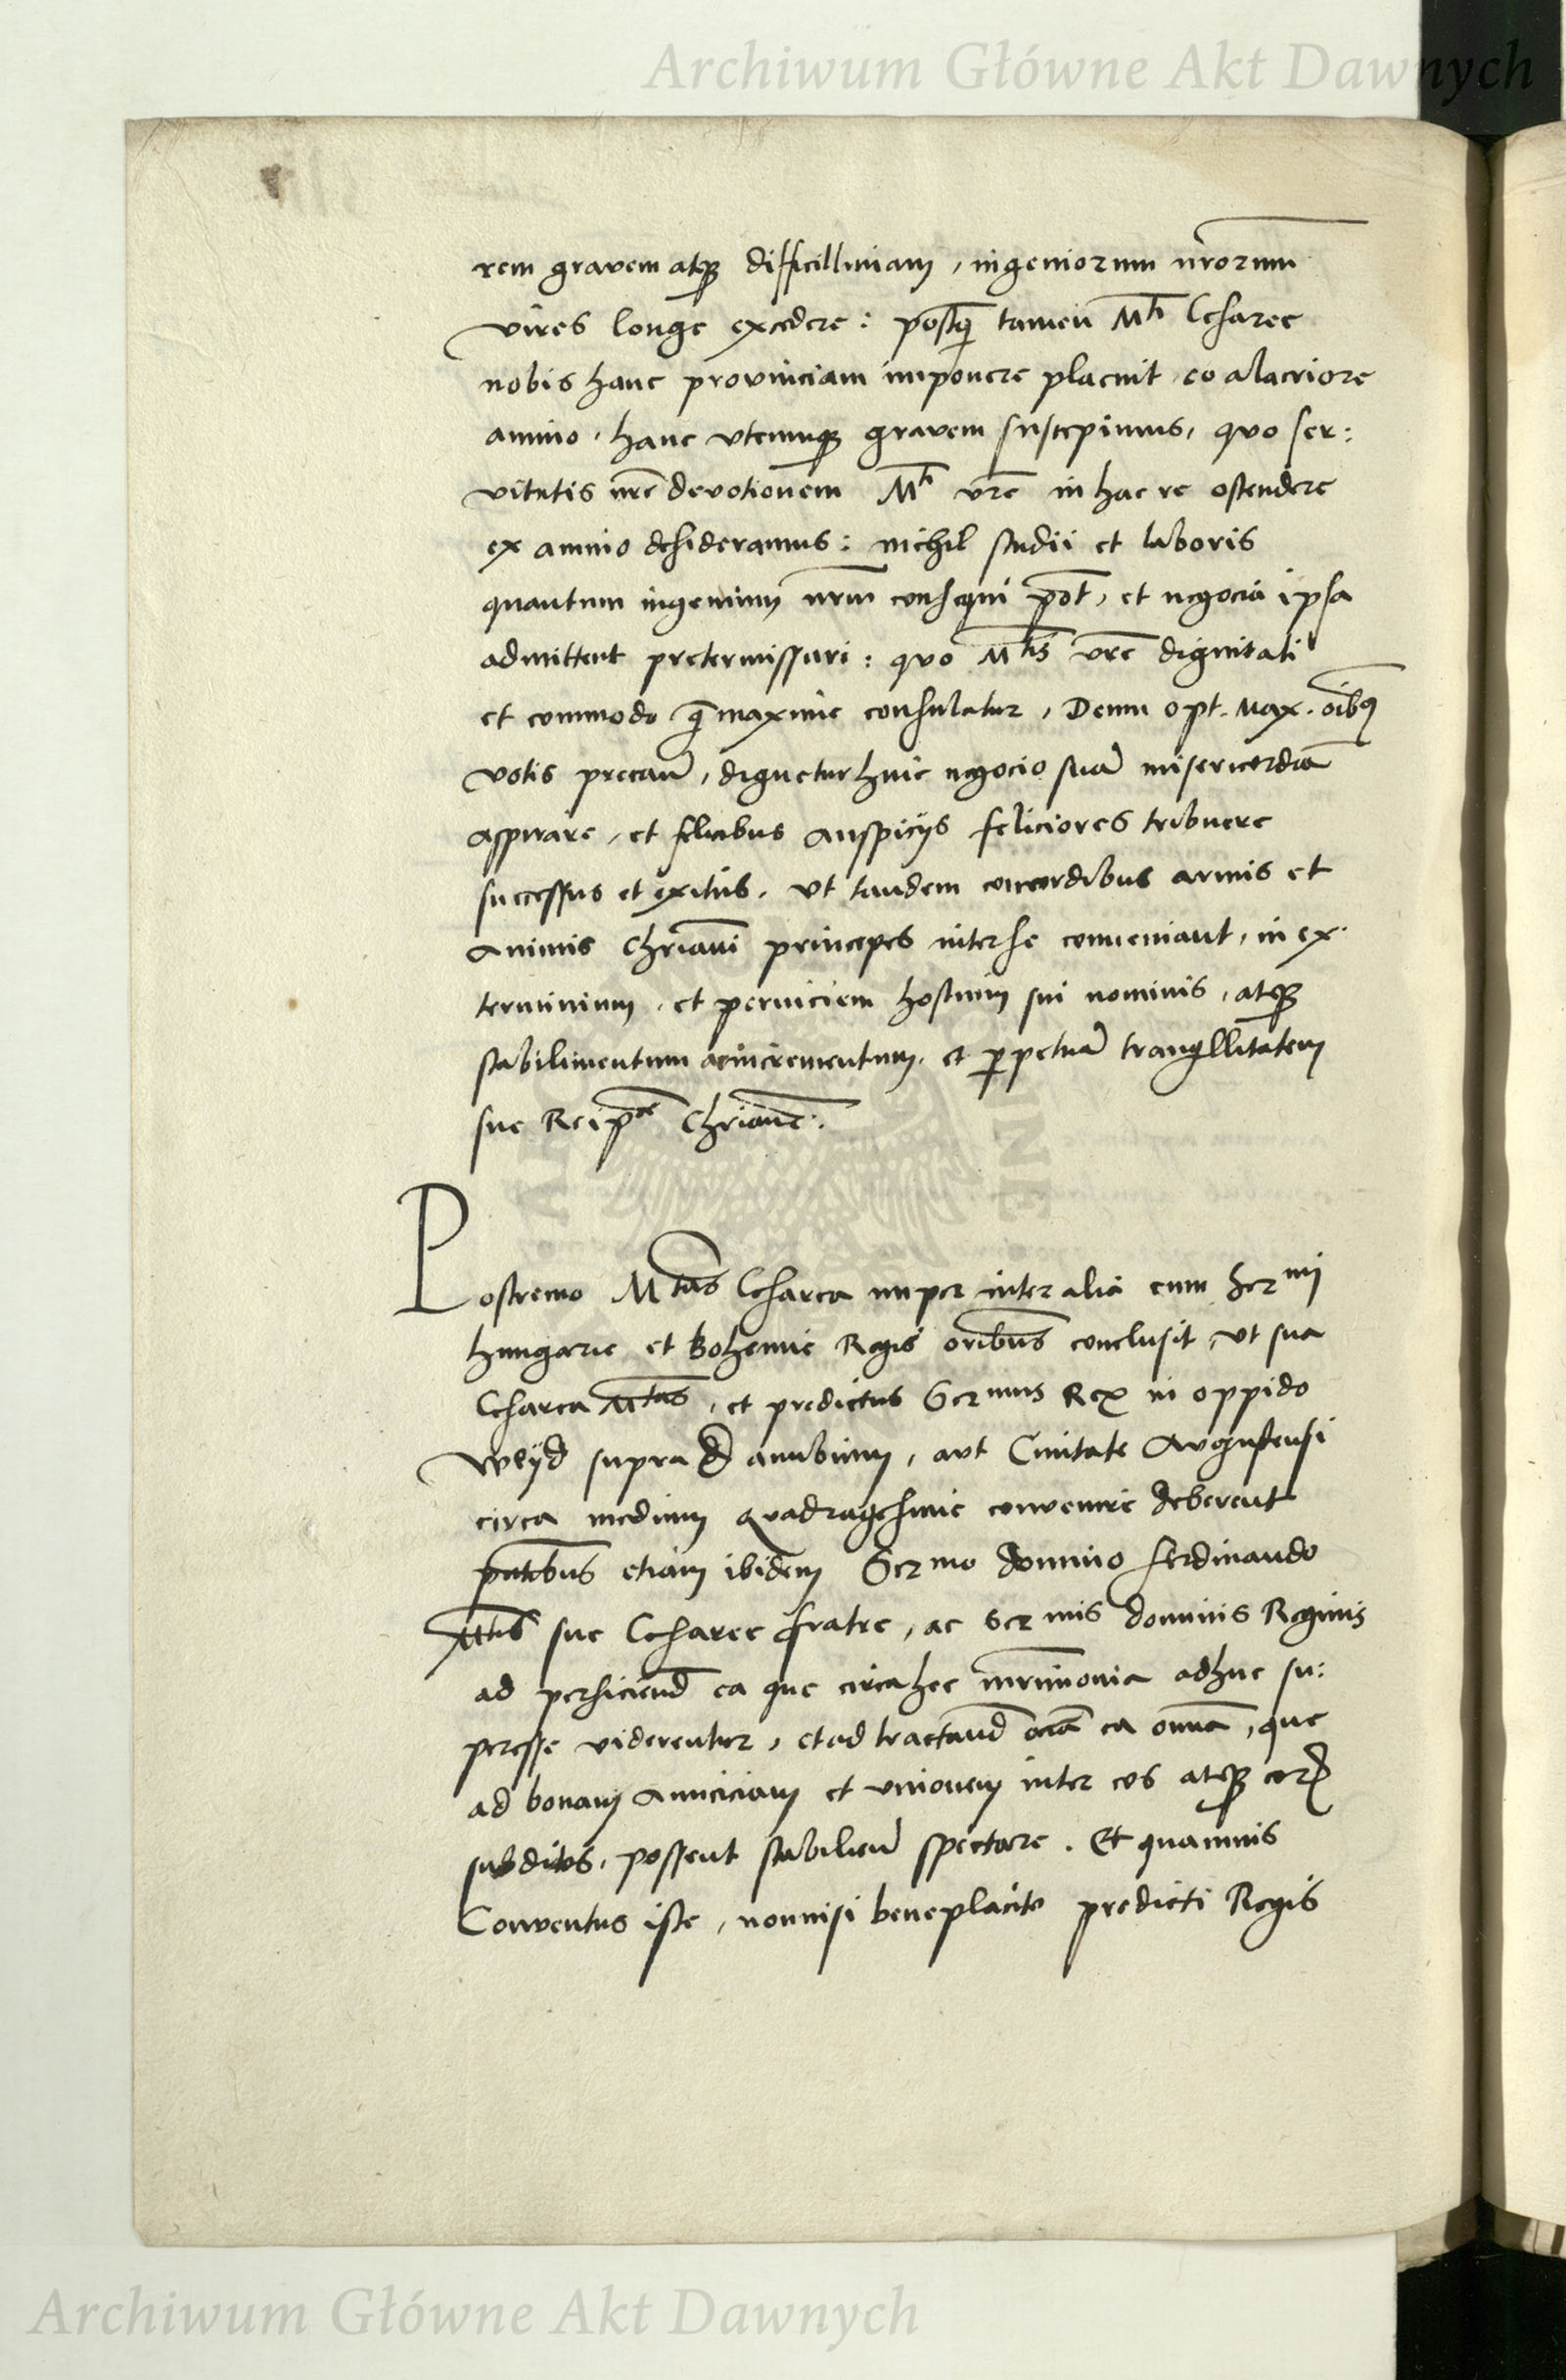 Archiwum Główne Akt Dawnych
rem gravem atq₃ difficillimam, ingeniorum nr̄orum
vires longe excedere: postq̄ tamen Mti Cesaree
nobis hanc provinciam imponere placuit eo alacriore
animo, hanc utcunq₃ gravem suscepimus, quo ser:
vitutis nr̄e devotionem Mti vr̄e in hac re ostendere
ex animo desideramus: nichil studii et laboris
quantum ingenium nr̄m consequi pōt, et negocia ipsa
admittent pretermissuri: quo Mtis vr̄e dignitati
et commodo q̄ maxime consulatur, Deum opt. Max. oīb₉
votis precamur̄, dignetur huic negocio suā misericordiā
aspirare, et felicibus auspicijs feliciores tribuere
successus et exitus, ut tandem concordibus armis et
animis Chr̄iani principes inter se conveniant, in ex:
terminium, et perniciem hostium sui nominis, atq₃
stabilimentum ac incrementum, et perpetuā tranq̄llitatem
sue Reipce Chr̄iane:
Postremo Mtas Cesarea nuper inter alia cum Sermi
Hungarie et Bohemie Regis orībus conclusit, ut sua
Cesarea Mtas, et predictus Sermus Rex in oppido
Weyd supra Danubium, aut Civitate Augustensi
circa medium Quadragesime convenire deberent
pn̄tibus etiam ibidem Sermo domino Ferdinando
Mtis sue Cesaree fratre, ac Sermis dominis Reginis
ad perficiend̄ ea que circa hec mr̄imonia adhuc su:
peresse viderentur, et ad tractand̄ eciā ea omnia, que
ad bonam amiciciam et unionem inter eos atq₃ eor̄
subditos, possent stabilien̄ spectare. Et quamvis
Conventus iste, nonnisi beneplacito predicti Regis
Archiwum Główne Akt Dawnych